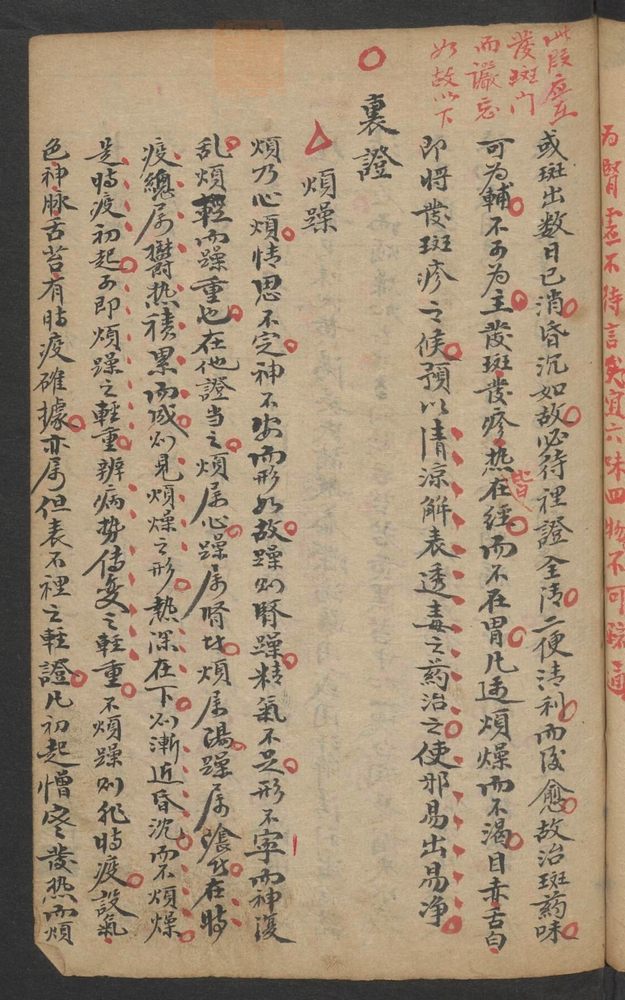 此段应立
發斑门
而譫妄
如故以下
或斑出数日已消昏沉如故必待裡證全清二便清利而後愈故治斑药味
可为輔不可为主發斑發疹热皆在經而不在胃凡遇煩燥而不渴目赤舌白
即将發斑疹之候預以清凉解表透毒之药治之使邪易出易净
裏證
煩躁
煩乃心煩情思不定神不安而形如故躁则腎躁精氣不足形不寧而神復
乱煩輕而躁重也在他證当之煩属心躁属腎比煩属陽躁属陰比在時
疫總属欝热積累而成则見煩燥之形热深在下则漸近昏沉而不煩燥
是時疫初起可即煩躁之軽重辨病势傳变之軽重不煩躁则非時疫設氣
色神脉舌苔有時疫確據亦属但表不裡之軽證凡初起憎寒發热而煩
为腎虚不待言矣宜六味四物不可